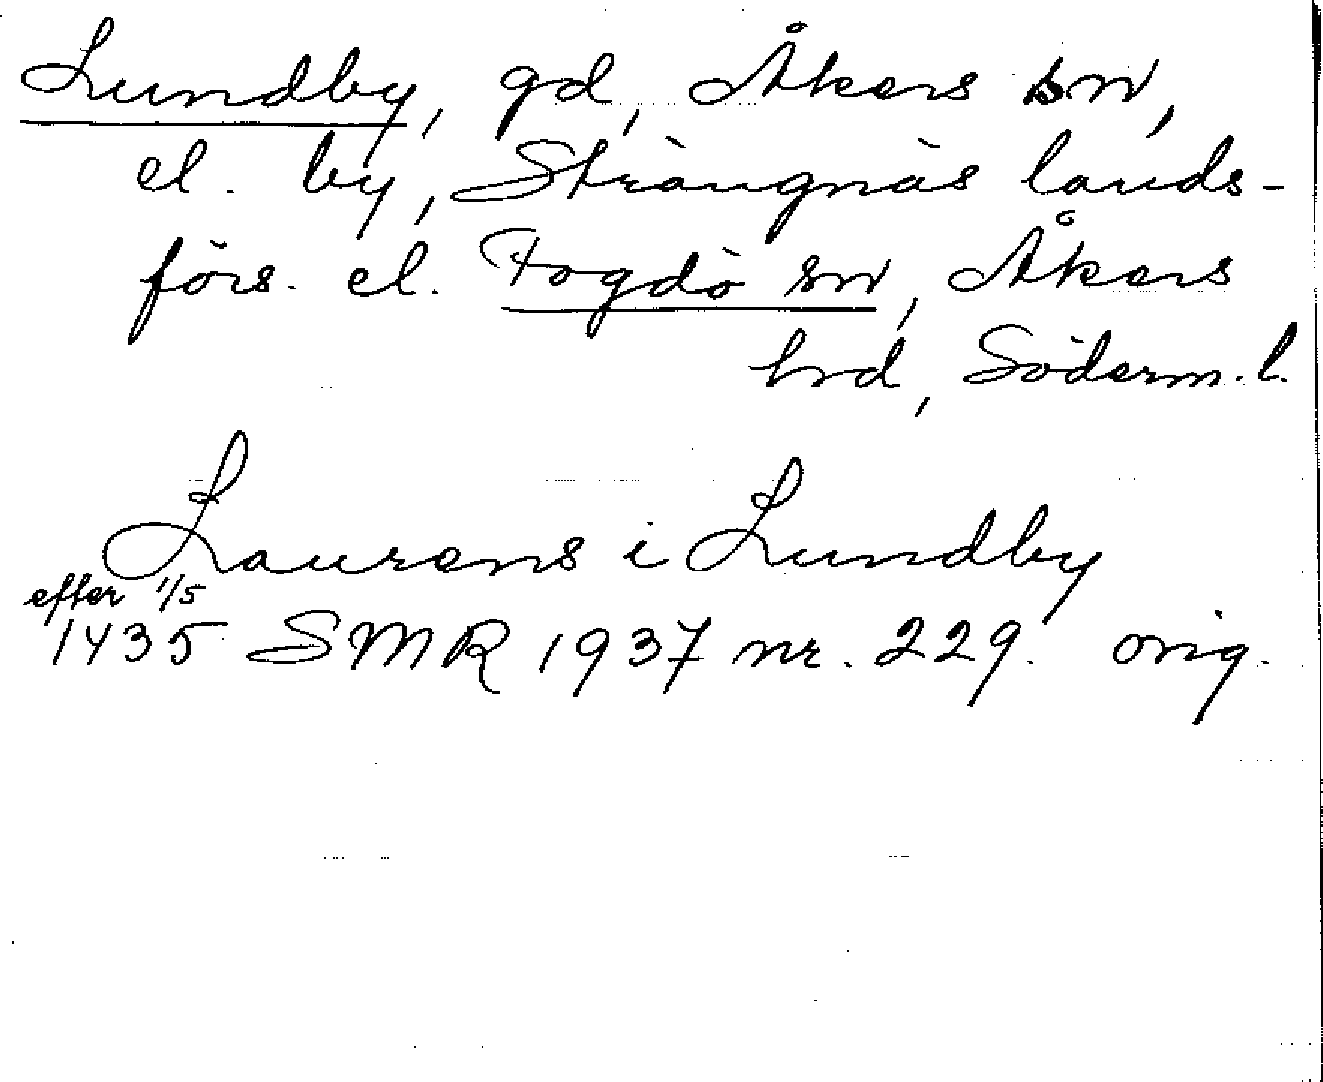 Lundby, gd, Åkers sn,
el. by, Strängnäs lands-
förs. el. Fogdö sn, Åkers
hrd, Söderm. l.
Laurens i Lundby
efter 1/5
1435 SMR 1937 nr. 229. orig.